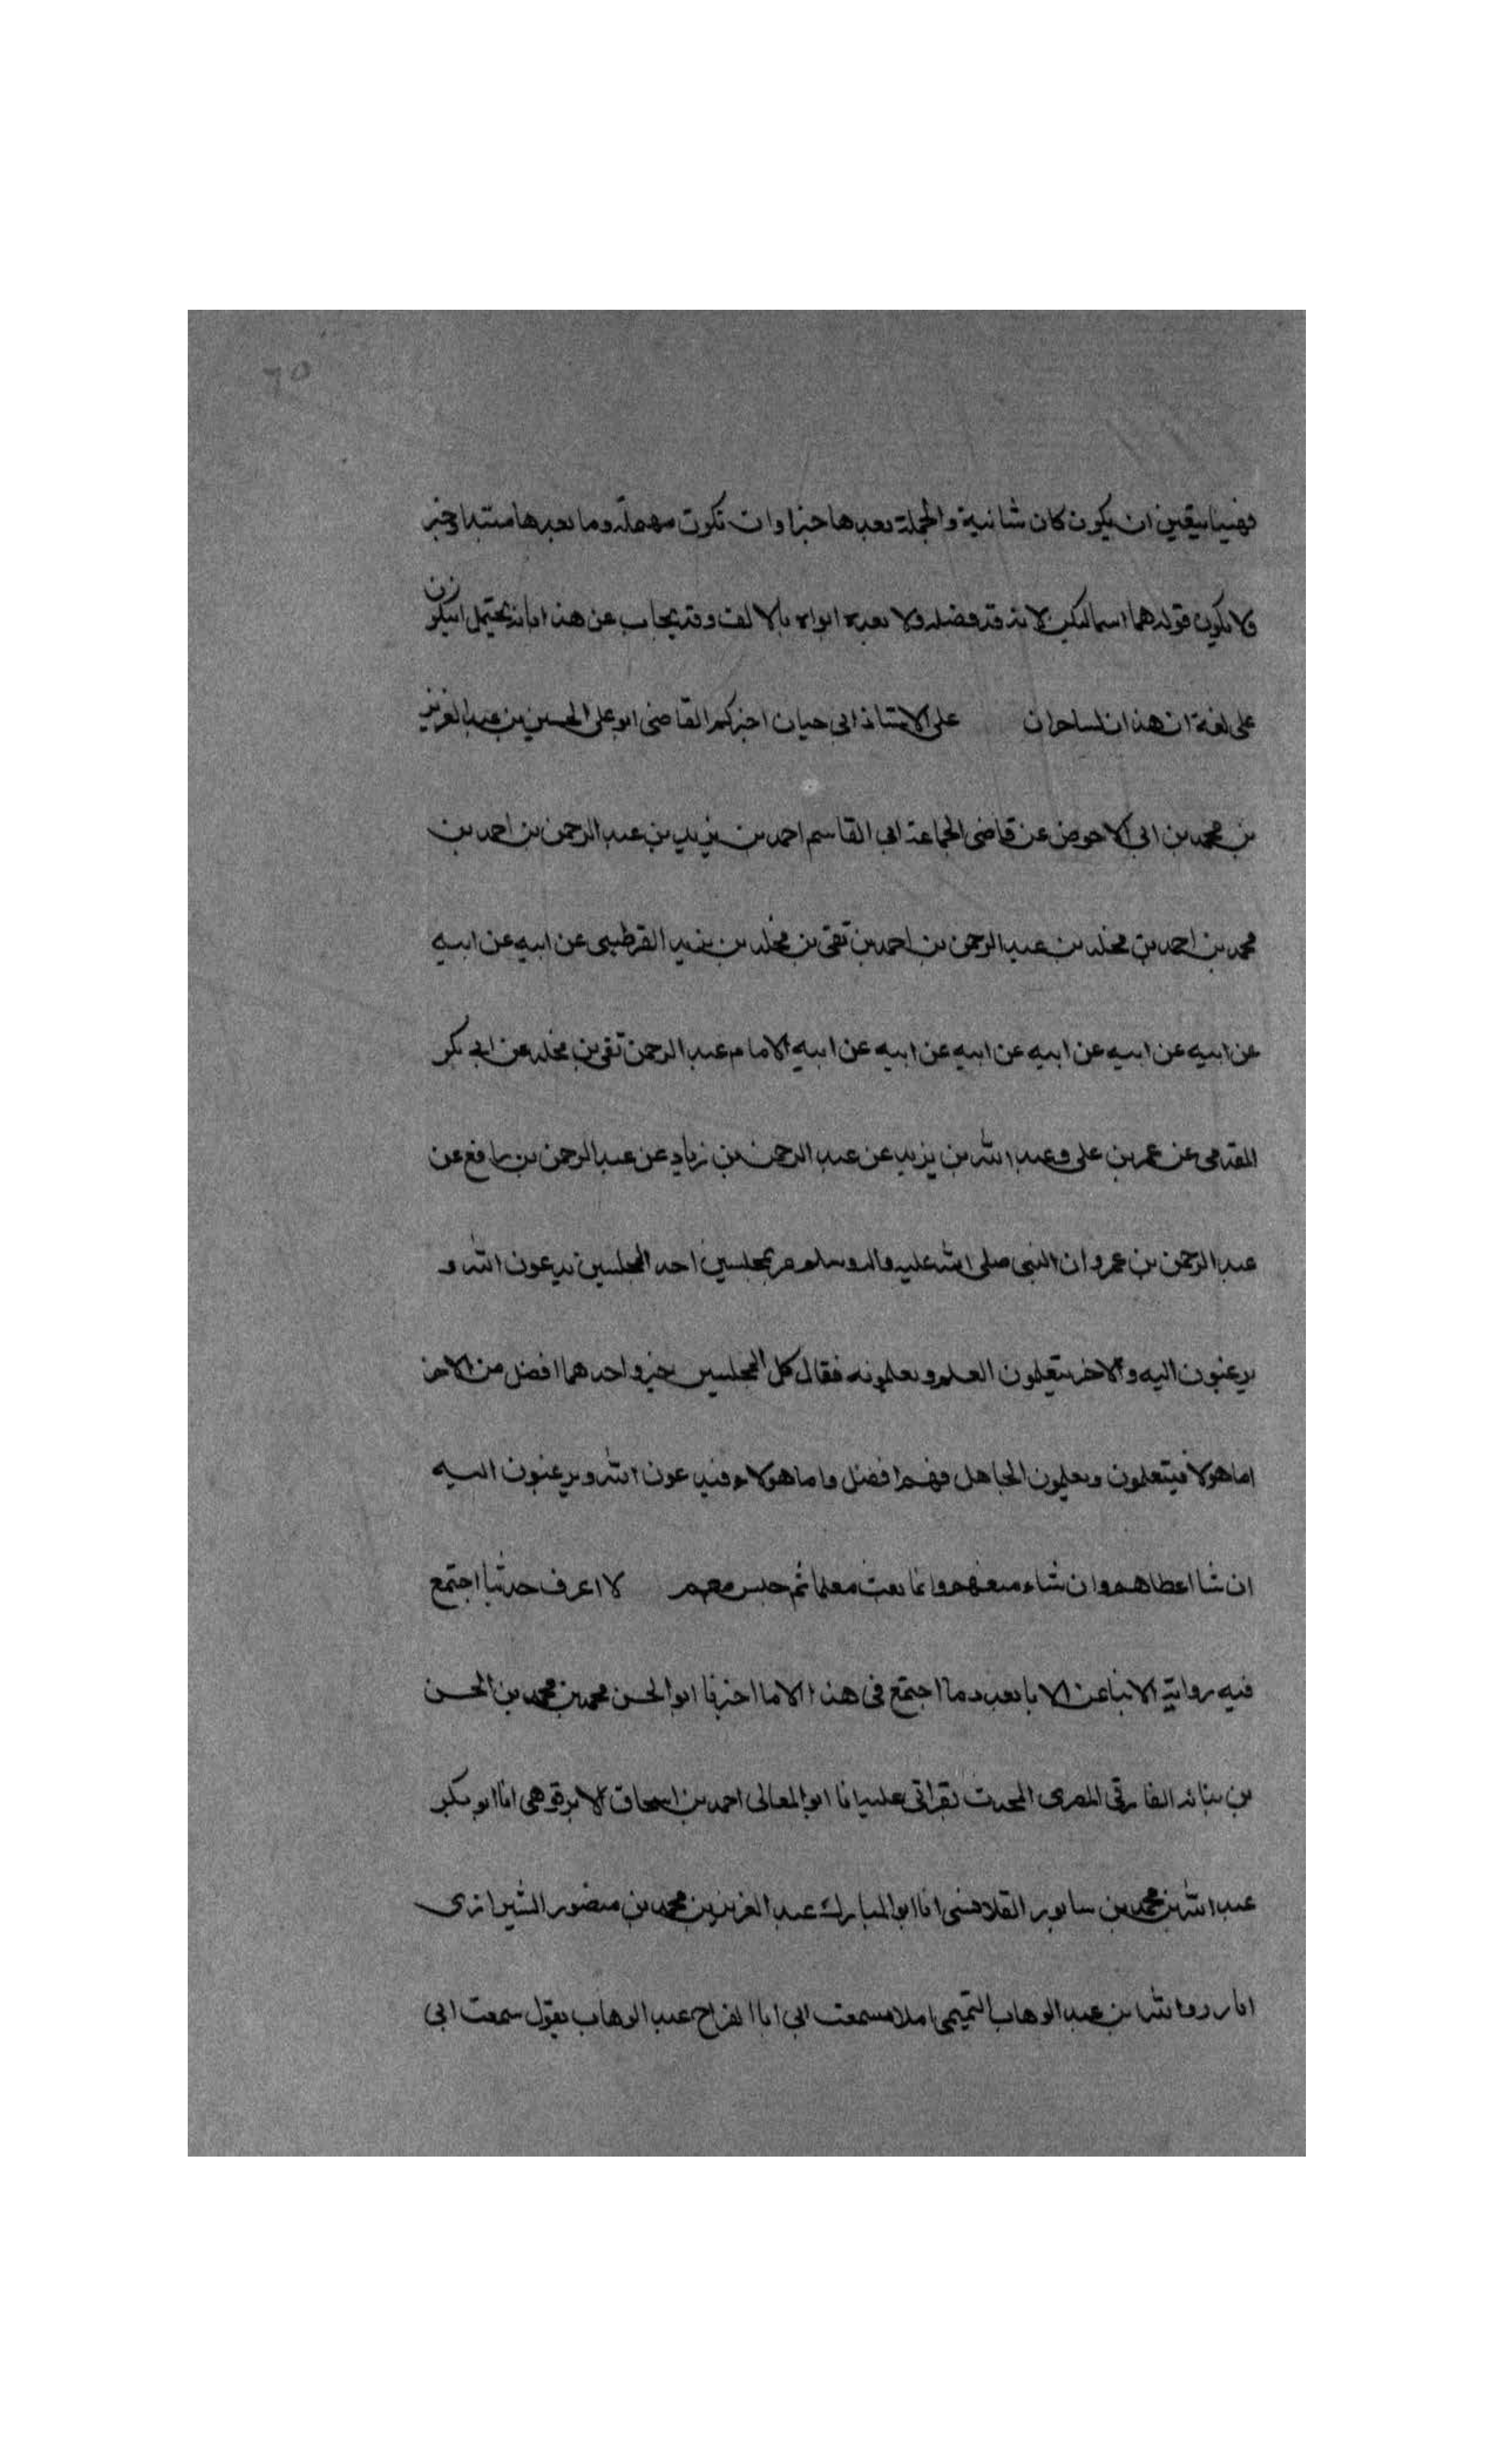 ٦٥
فهنا يتقين ان يكون كان شانية والجملة بعدها خبرا وان تكون مهملة وما بعدها مبتدا وخبر
ولا يكون قوله هما اسما لتكن لانه قد فصله ولا بعده ابواه بالالف وقد يجاب عن هذا بانه يحتمل ان يكون
على لغة ان هذان لساحران على الاستاذ ابي حيان اخبركم القاضى ابو على الحسين بن عبد العزيز
بن محمد بن ابى الاحوص عن قاضى الجماعة ابى القاسم احمد بن يزيد بن عبد الرحمن بن احمد بن
محمد بن احمد بن مخلد بن عبد الرحمن بن احمد بن تقى بن مخلد بن يزيد القرطبى عن ابيه عن ابيه
عن ابيه عن ابيه عن ابيه عن ابيه عن ابيه عن ابيه الامام عبد الرحمن تقى بن مخلد عن ابى بكر
المقدمى عن عمر بن على وعبد الله بن يزيد عن عبد الرحمن بن زياد عن عبد الرحمن بن رافع عن
عبد الرحمن بن عمرو ان النبى صلى الله عليه واله وسلم مر بمجلسين احد المجلسين يدعون الله و
يرغبون اليه والاخر يتعلمون العلم ويعلمونه فقال كل المجلسين خير واحدهما افضل من الاخر
اما هولا فيتعلمون ويعلمون الجاهل فهم افضل واما هولاء فيدعون الله ويرغبون اليه
ان شا اعطاهم وان شاء منعهم وانما بعثت معلما ثم جلس معهم لا اعرف حديثا اجتمع
فيه رواية الابنا عن الابا بعدد ما اجتمع فى هذا الا ما اخبرنا ابو الحسن محمد بن محمد بن الحسن
بن نباته الفارقى المصرى المحدث بقراتى عليه انا ابو المعالى احمد بن اسحاق الابرقوهى انا ابو بكر
عبد الله بن محمد بن سابور القلانسى انا ابو المبارك عبد العزيز بن محمد بن منصور الشيرازى
انا رزق الله بن عبد الوهاب التميمى املا سمعت ابى ابا الفرج عبد الوهاب يقول سمعت ابى